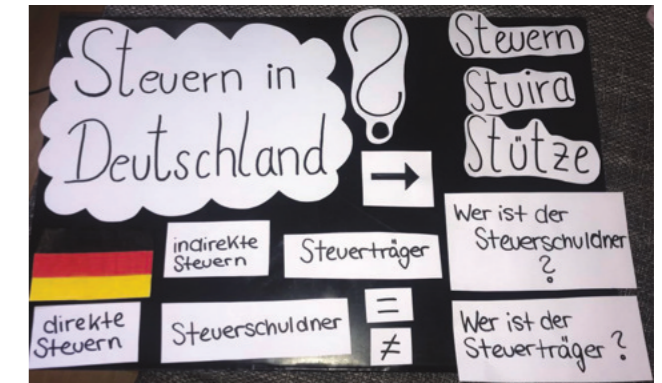 Steuern in
Deutschland
?
→
Steuern
Stuira
Stütze
indirekte
Steuern
Steuerträger
Wer ist der
Steuerschuldner
?
direkte
Steuern
Steuerschuldner
=
≠
Wer ist der
Steuerträger?